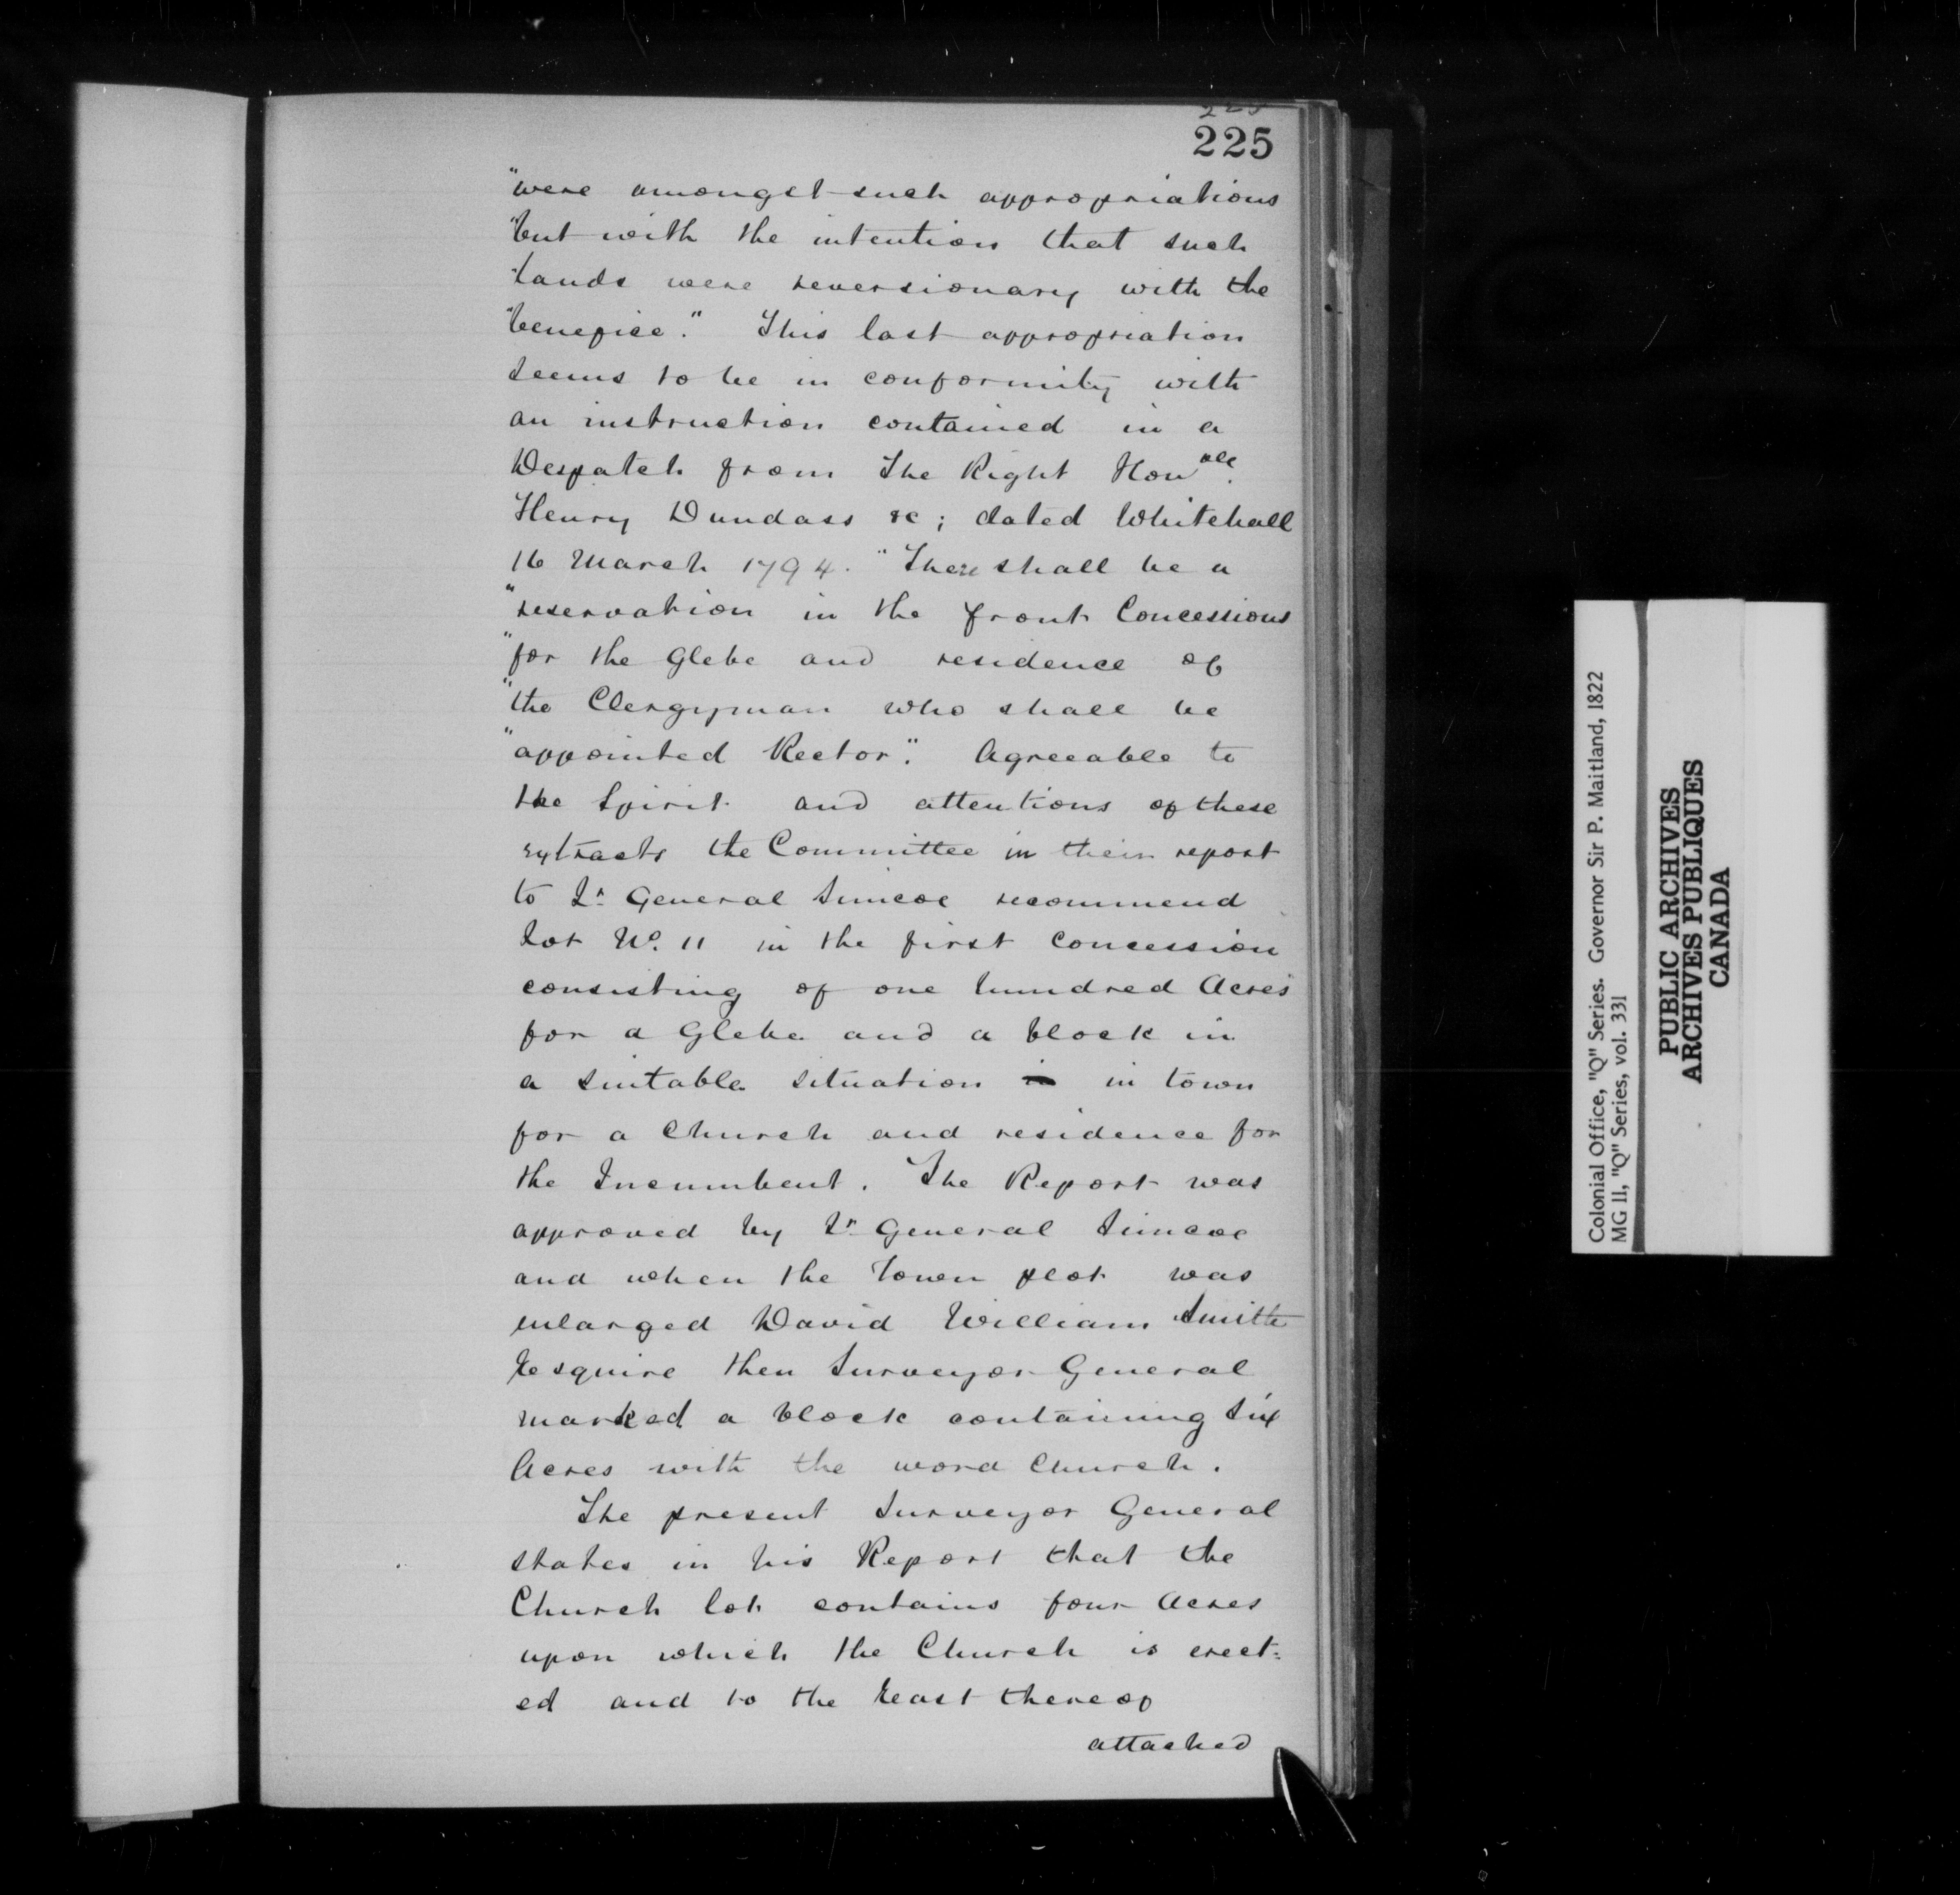 225
225
"were amongst such appropriations
"but with the intention that such
"lands were reversionary with the
"benefice." This last appropriation
seems to be in conformity with
an instruction contained in a
Despatch from The Right Honble.
Henry Dundass &c; dated Whitehall
16 March 1794. "There shall be a
"reservation in the front Concessions
"for the Glebe and residence of
"the Clergyman who shall be
"appointed Rector." Agreeable to
the Spirit and attentions of these
extracts the Committee in their report
to Lt General Simcoe recommend
Lot No. 11 in the first Concession
consisting of one hundred Acres
for a Glebe and a block in
a suitable situation in in town
for a Church and residence for
the Incumbent. The Report was
approved by Lt General Simcoe
and when the Town plot was
enlarged David William Smith
Esquire then Surveyor General
marked a block containing Six
Acres with the word Church.
The present Surveyor General
states in his Report that the
Church lot contains four Acres
upon which the Church is erect=
ed and to the East thereof
attached
Colonial Office, "Q" Series. Governor Sir P. Maitland, 1822
MG 11, "Q" Series, vol. 331
PUBLIC ARCHIVES
ARCHIVES PUBLIQUES
CANADA